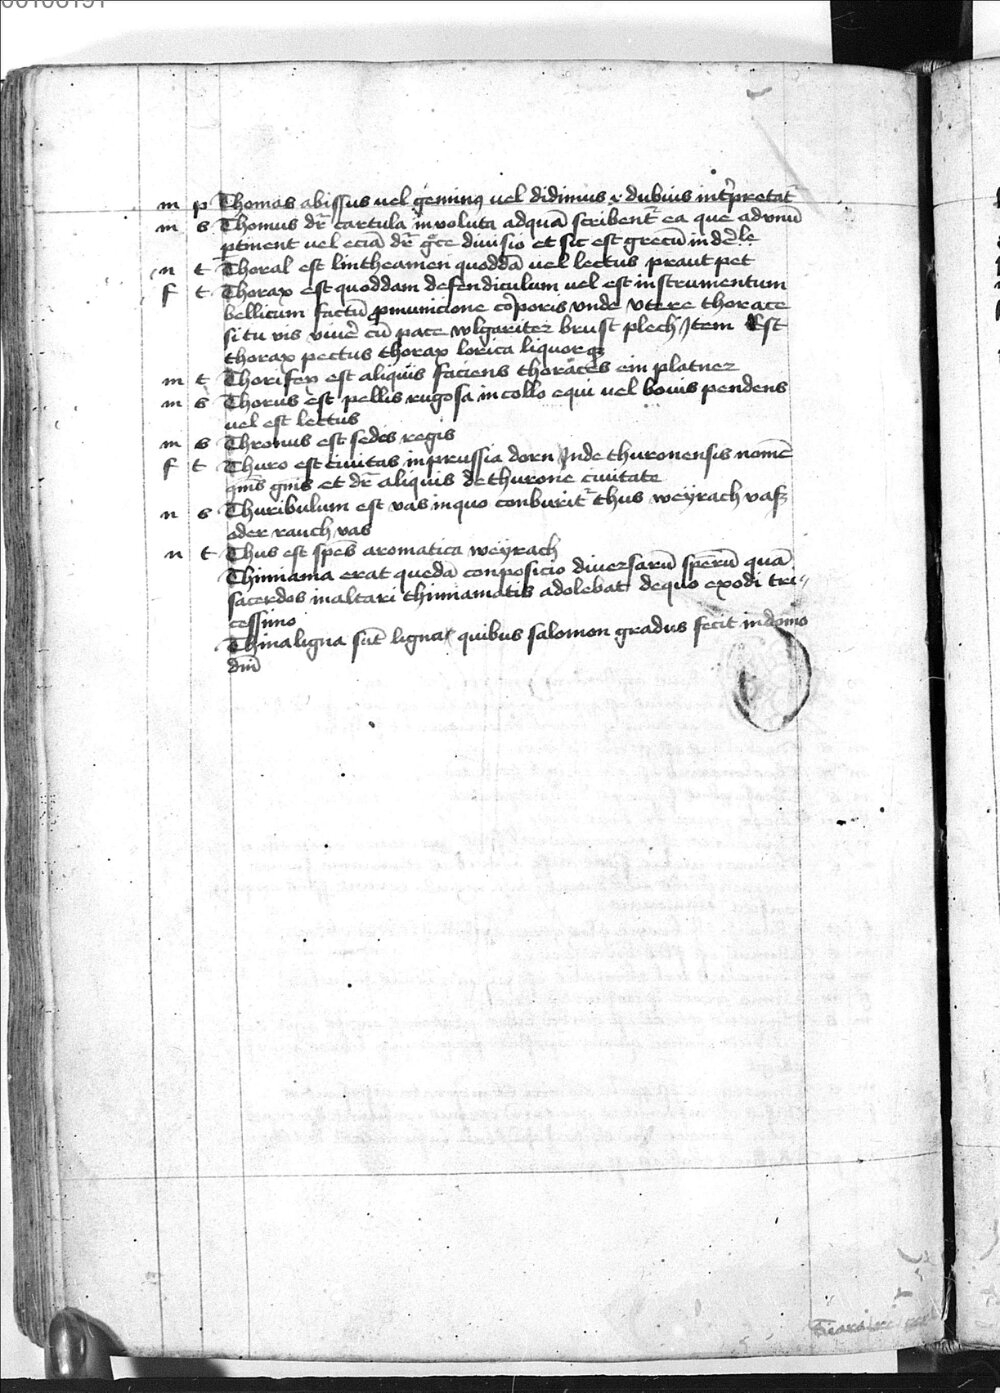 00106191
m p Thomas abissus uel geminꝰ uel didimus & dubius int̉pretat̄
m s Thomus dr̄ cartula in voluta adquā scribent̄ ea que advnū
ptinent uel eciā dr̄ gͨce diuisio et sic est grecū indecͥle
n t Thoral est lintheamen quoddā uel lectus praut pet
f t Thorax est quoddam defendiculum uel est instrumentum
bellicum factū ꝓmunicione cor̉poris vnde vtere thorace
si tu vis viuer̉ cū pace wlgariter brust plech Jtem Est
thorax pectus thorax lorica liquorqꝫ
m t Thorifex est aliquis faciens thoraces ein platner
m s Thorus est pellis rugosa in collo equi uel bouis pendens
uel est lectus
m s Thronus est sedes regis
f t Thuro est ciuitas inprussia dorn Jnde thuronensis nomē
om̄is gn̄is et dr̄ aliquis de thurone ciuitate
n s Thuribulum est vas inquo conburit̄ thus weyrach vasz
oder rauch vas
n t Thus est spēs aromatica weyrach
Thimiama erat quedā conposicio diuersarū sperū quā
sacerdos inaltari thimiamatis adolebat dequo exodi tri⸗
cessimo
Thinaligna sūt ligna quibus salomon gradus fecit indomo
dn̄i